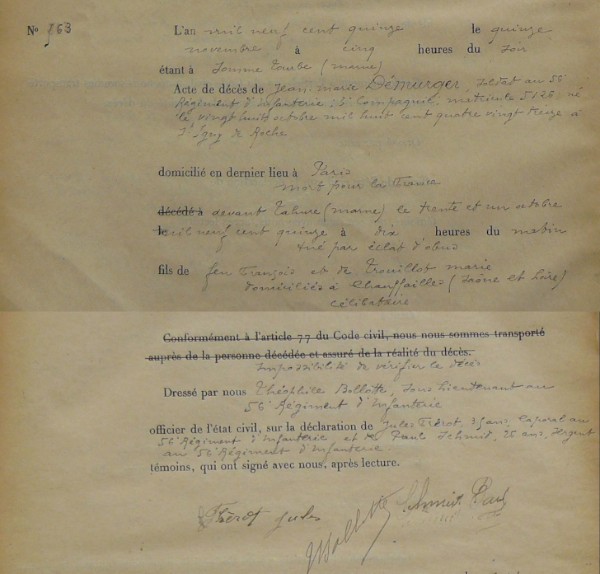 No 963
L'an mil neuf cent quinze le quinze
novembre à cinq heures du soir
étant à Somme Tourbe (marne)
Acte de décès de Jean-Marie Démurger, soldat au 56e
Régiment d'Infanterie, Compagnie, matricule 5128 né
le vingt huit octobre mil huit cent quatre vingt treize à
St Igny de Roche
domicilié en dernier lieu à Paris
mort pour la France
décédé à devant Tahure (marne) le trente et un octobre
mil neuf cent quinze à dix heures du matin
tué par éclat d'obus
fils de feu François et de Trouillot marie
domiciliés à Chauffailles (Saône et Loire)
célibataire
Conformément à l'article 77 du Code civil, nous nous sommes transporté
auprès de la personne décédée et assuré de la réalité du décès.
Impossibilité de vérifier le décès
Dressé par nous Théophile Bollotte, sous lieutenant au
56e Régiment d'Infanterie
officier de l'état civil, sur la déclaration de Jules Thérot, ans, caporal au
56e Régiment d'Infanterie et de Paul Schmit, 25 ans, sergent
au 56e Régiment d'Infanterie
témoins, qui ont signé avec nous, après lecture.
Thérot Jules Bollotte Schmit Paul